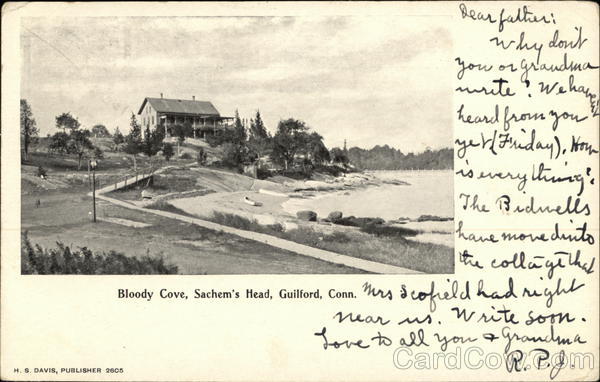 Dear father:
Why don't
you or Grandma
write? We haven't
heard from you
yet (Friday), How
is everything?
The Bidwells
have moved into
the collage that
Mrs Scofield had right
near us. Write soon.
Love to all you & Grandma
R. P. J.
Bloody Cove, Sachem's Head, Guilford, Conn.
H. S. DAVIS, PUBLISHER 2605
CardCow.com